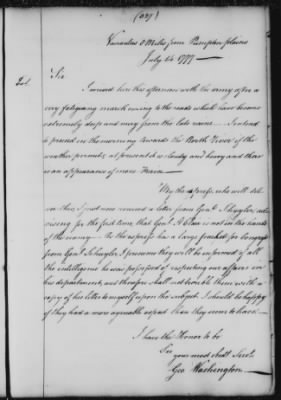 (227)
Vanaulens 8 Miles from Pumpton plains
July 14. 1777
Sir
I arrived here this afternoon with the army after a
very fatiguing march owing to the roads which have become
extremely deep and miry from the late rains. I intend
to proceed in the morning towards the North River if the
weather permits, at present it is cloudy and heavy and there
is an appearance of more Rain.
By the express, who will del-
iver this I just now received a letter from Genl. Schuyler, ad-
vising for the first time, that Genl. St Clair is not in the hands
of the enemy. As the express has a large packet for Congress
from Genl. Schuyler I presume they will be informed of all
the intelligence he was possessed of respecting our affairs in
his department, and therefore shall not trouble them with a
copy of his letter to myself upon the subject. I should be happy
if they had a more agreeable aspect than they seem to have.
I have the Honor to be
Sir
your most obedt. Servt.
Geo. Washington